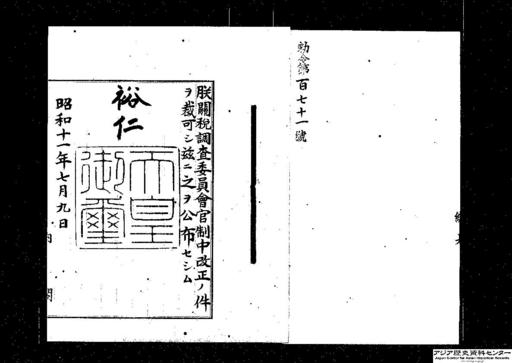 勅令第百七十一號
朕關税調査委員會官制中改正ノ件
ヲ裁可シ茲ニ之ヲ公布セシム
裕仁
天皇
御璽
昭和十一年七月九日
内閣
アジア歴史資料センター
Japan Center for Asian Historical Records